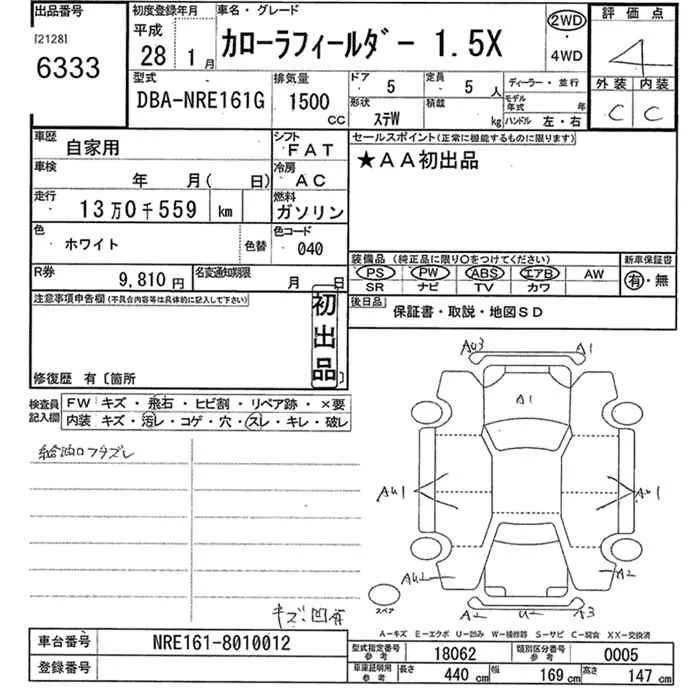 出品番号
[2128]
6333
初度登録年月
平成
28 1月
車名・グレード
カローラフィールダー 1.5X
2WD
・
4WD
評価点
4
外装 内装
C C
型式
DBA-NRE161G
排気量
1500
cc
ドア
5
定員
5 人
形状
ステW
積載
kg
ディーラー・並行
モデル年式 年
ハンドル 左・右
車歴
自家用
シフト
FAT
セールスポイント(正常に機能するものに限ります)
★AA初出品
車検
年 月( 日)
冷房
AC
走行
13万0千559 km
燃料
ガソリン
色
ホワイト
色替
色コード
040
装備品 (純正品に限り○をつけてください)
新車保証書
PS PW ABS エアB AW
SR ナビ TV カワ
有・無
R券
9,810円
名変通知期限
月 日
後日品
保証書・取説・地図SD
注意事項申告欄(不具合内容等は具体的に記入して下さい)
初出品
修復歴 有〔箇所 〕
検査員記入欄
FW キズ・飛石・ヒビ割・リペア跡・×要
内装 キズ・汚レ・コゲ・穴・スレ・キレ・破レ
給油口フタズレ
キズ凹有
AU3 A1
A1
AU1 AU1
AU2 A2
スペア
A2 U2 A3
A-キズ E-エクボ U-凹み W-補修跡 S-サビ C-腐食 XX-交換済
車台番号
NRE161-8010012
登録番号
型式指定番号
参考
18062
類別区分番号
参考
0005
車庫証明用
参考
長さ 440 cm 幅 169 cm 高さ 147 cm